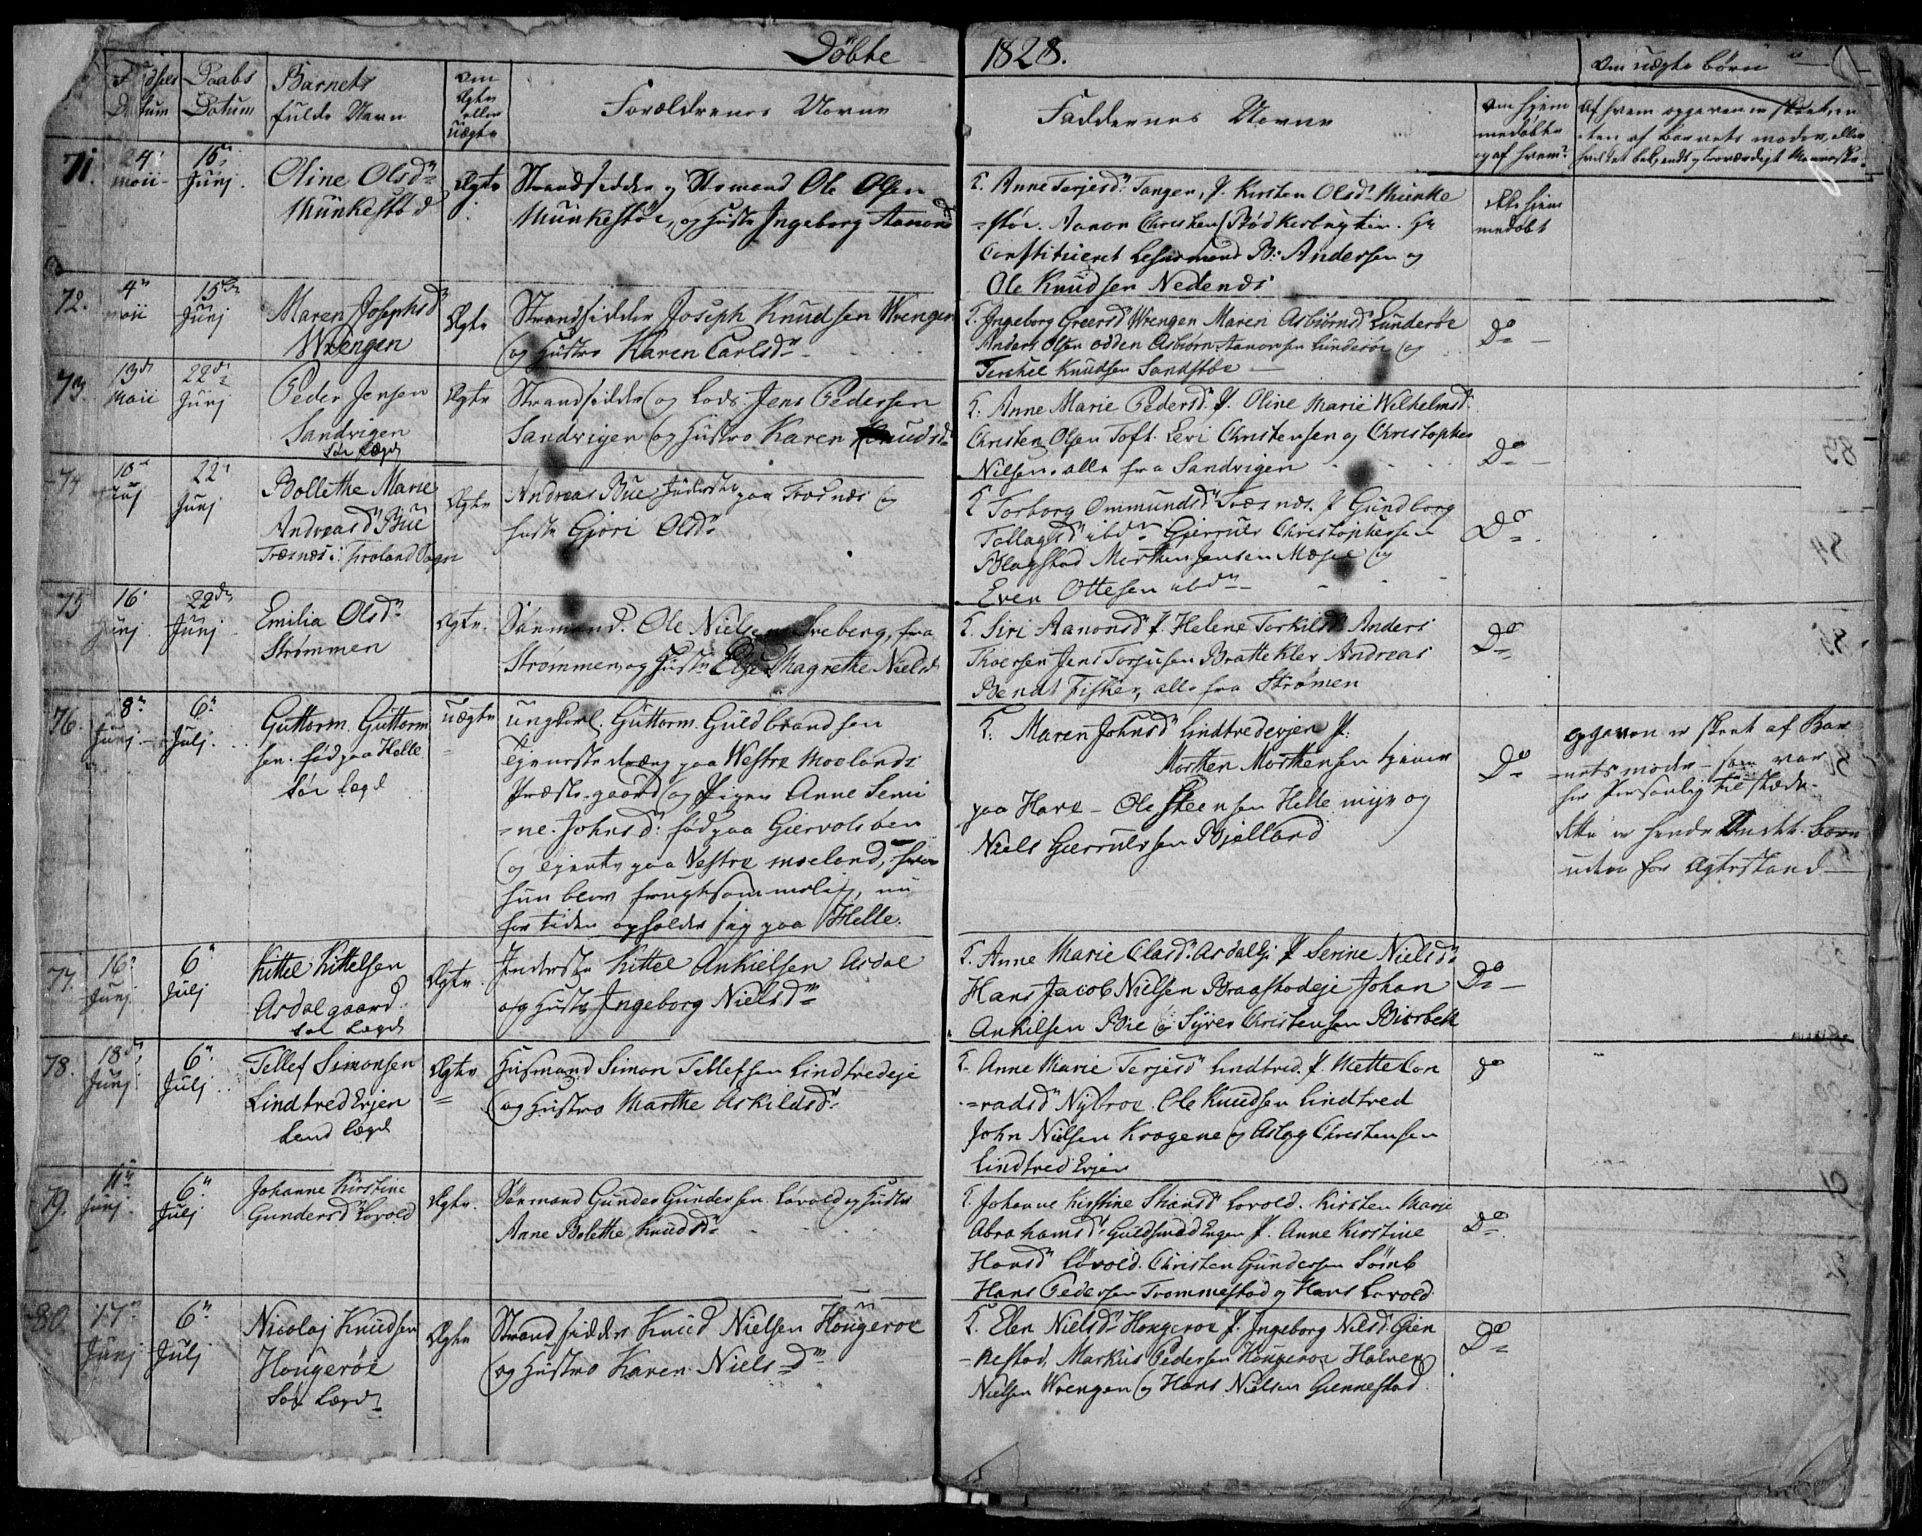 Døbte 1828.
Fødsels Datum
Daabs Datum
Barnets fulde Navn
Om Ægte eller Uægte
Forældrenes Navne
Faddernes Navne
Om hjem medøbte og af hvem?
Om uægte børn
Af hvem opgaven er skeet, en
-ten af barnets moder, eller
71.
24 Maii
15 Junj
Oline Olsd.
Munkestød
Ægte
Strandsidder og Ole Olsen
Munkestøe, og Hustr Ingeborg Aanond
T. Anne Terjesd. Tangen, P. Kirsten Olsd. Munke
-støe. Aanon Christen Bødkerbugten. Hr
Constitueret Lehnsmand B. Andersen og
Ole Knudsen Nedenæs
Ikke hjem
medøbt
72.
4 Maii
15 Junj
Maren Josephsd
Wrengen
Ægte
Strandsidder Joseph Knudsen Wrengen
og Hustro Karen Carlsd.
T. Ingeborg Greersd Wrengen Maren Asbiørnsd Lunderøe
Anders Olsen Odden Asbiørn Aanonsen Lunderøe og
Terkel Knudsen Sandstøe
Do
73.
13 Maii
22 Junj
Peder Jensen
Sandvigen
Søe Lægd
Ægte
Strandsidder og Lods Jens Pedersen
Sandvigen og Hustro Karen Knudsd.
T. Anne Marie Pedersd. P. Oline Marie Wilhelmsd.
Christen Olsen Toft. Levi Christensen og Christopher
Nilsen. alle fra Sandvigen
Do
74
10 Junj
22 Junj
Bollethe Marie
Andreasd Bue
Træsnæs i Froland Sogn
Ægte
Andreas Bue Inderste paa Træsnæs og
Hustr Gjøri Olsd.
T Torborg Ommundsd Træsnæs. P Gundborg
Tallagsd ibd. Gierrul Christophersen
Blagstad Morthen Jensen Mæsel og
Even Ottesen ibdm
Do
75
16 Junj
22 Junj
Emilia Olsd.
Strømmen
Ægte.
Søemand. Ole Nielsen Freberg, fra
Strømmen, og Hustr Else Magrethe Nielsd
T. Siri Aanonsd P. Helene Torkilsd Anders
Thoersen Jens Torjusen Bratteklev Andreas
Bendt Fisher, alle fra Strømen
Do
76.
8 Junj
6 Julj.
Guttorm Guttorm
sen. fød paa Helle
Søe Lægd
Uægte
Ungkarl Guttorm Guldbrandsen
Tjenestedreng paa Westre Moelands
Præstegaard og Pigen Anne Semi
-ne Johnsd: fød paa Giervolsøen
og tjente paa Vestre Moeland, hvor
hun blev frugtsommelig, nu
for tiden opholder sig paa Helle.
T. Maren Johnsd Lindtredeejen P.
Morthen Morthensen tjener
paa Have - Ole Steensen Helle mijr og
Niels Gierrulvsen Bjelland
Do
Opgaven er skeet af Bar
-nets moder - som var
her Personlig tilstæde.
dette er hendes Barn
uden for Ægtestand
77.
16 Junj
6 Julj
Kittel Kittelsen
Asdal gaard
Søe Lægd
Ægte.
Inderste Kittel Ankielsen Asdal
og Hustr Ingeborg Nielsd.
T. Anne Marie Olasd. Asdalej. P Serine Nielsd.
Hans Jacob Nielsen Braastadeje Johan
Ankilsen Bie og Syver Christensen Biorbek
Do
78.
18 Junj
6 Julj
Tellef Simonsen
Lindtred Ejen
Land Lægd
Ægte
Husmand Simon Tellefsen Lindtredeje
og Hustro Marthe Askildsd.
T. Anne Marie Terjesd Lindtred. P. Mette Con
-radsd Nybroe. Ole Knudsen Lindtred
John Nielsen Krogene og Aslag Christensen
Lindtred Ejen
Do
79.
11 Junj.
6 Julj
Johanne Kirstine
Gundersd Lovold
Ægte.
Søemand Gunder Gundersen Lovold og Hustr
Anne Bolethe Knudsd.
T. Johanne Kirstine Lovold. Kirsten Marie
Abrahamsd Guldsmed Engen P. Anne Kirstine
Hansd Løvold. Christen Gundersen Sømb
Hans Pedersen Trommestad og Hans Lovold
Do
80.
17 Junj
6 Julj
Nicolaj Knudsen
Hougerøe
Søe Lægd
Ægte
Strandsidder Knud Nielsen Hougeroe
og Hustro Karen Nielsd.
T. Elen Nielsd. Hougeroe P. Ingeborg Nilsd Gien
-nestad, Markus Pedersen Hougeroe Halvor
Nielsen Wrengen og Hans Nielsen Giennestad
Do